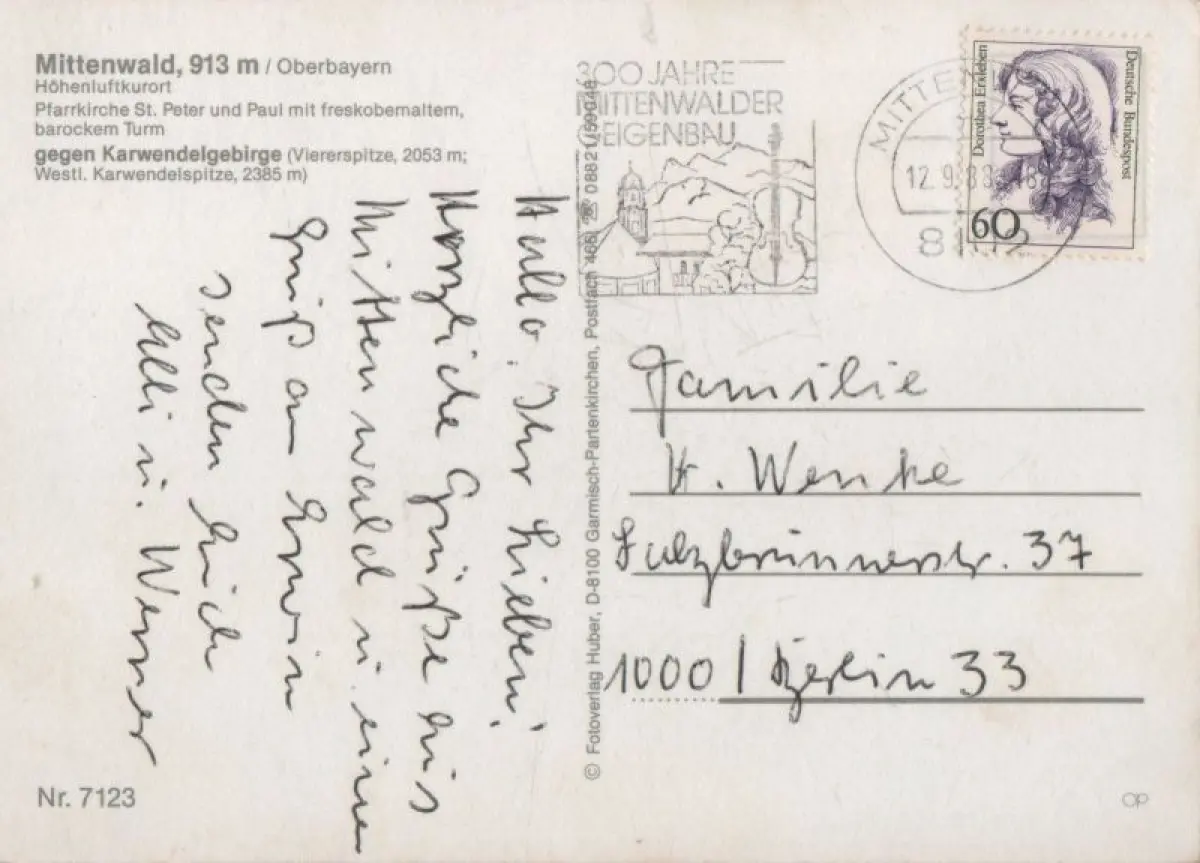 Mittenwald, 913 m / Oberbayern
Höhenluftkurort
Pfarrkirche St. Peter und Paul mit freskobemaltem,
barockem Turm
gegen Karwendelgebirge (Viererspitze, 2053 m;
Westl. Karwendelspitze, 2385 m)
Hallo, Ihr Lieben!
Herzliche Grüße aus
Mittenwald u. einen
Gruß an Erwin
senden Euch
Elli u. Werner
Nr. 7123
© Fotoverlag Huber, D-8100 Garmisch-Partenkirchen, Postfach 466, ☏ 08821/59048
300 JAHRE
MITTENWALDER
GEIGENBAU
MITTEN
12.9.88 18
81 2
Dorothea Erxleben
Deutsche Bundespost
60
Familie
H. Wenke
Salzbrunnerstr. 37
1000 / Berlin 33